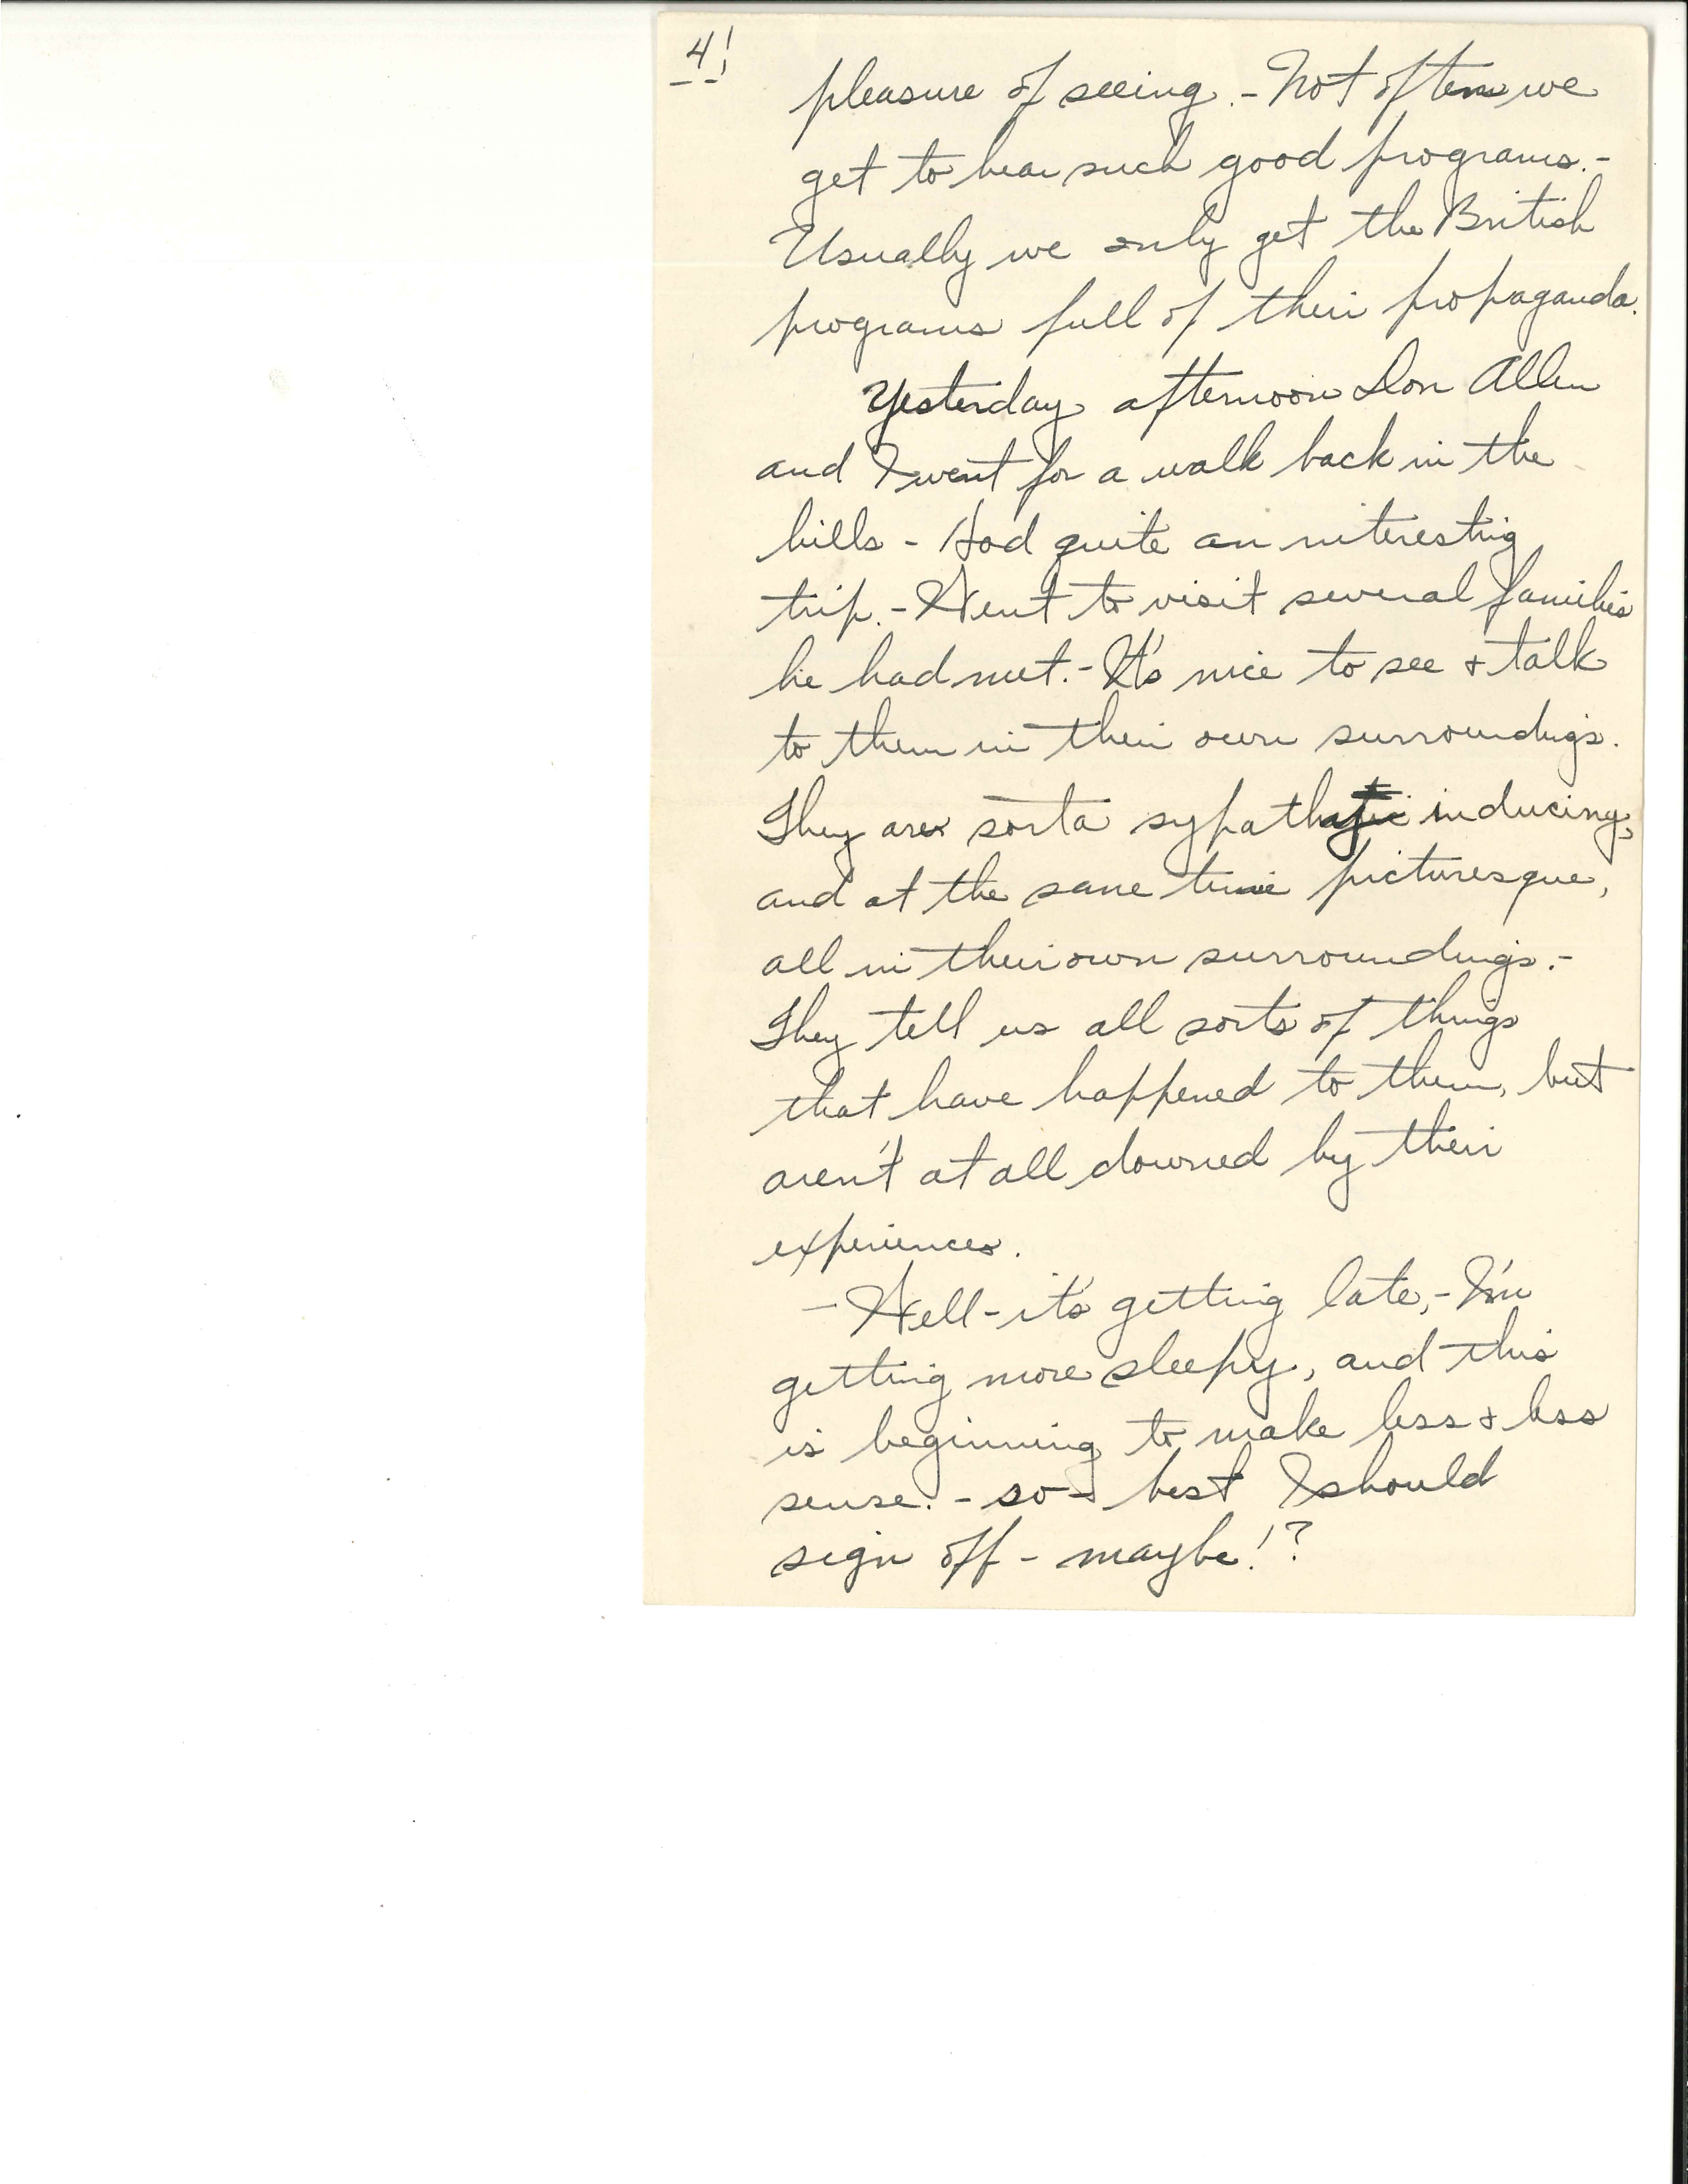 4!
pleasure of seeing. - Not often we
get to hear such good programs. -
Usually we only get the British
programs full of their propaganda.
Yesterday afternoon Don Allen
and I went for a walk back in the
hills - Had quite an interesting
trip. - Went to visit several families
he had met. - It's nice to see & talk
to them in their own surroundings.
They are sorta inducing,
and at the same time picturesque,
all in their own surroundings. -
They tell us all sorts of things
that have happened to them, but
aren't at all downed by their
experiences.
- Well - it's getting late, - I'm
getting more sleepy, and this
is beginning to make less & less
sense. - so - best I should
sign off - maybe!?